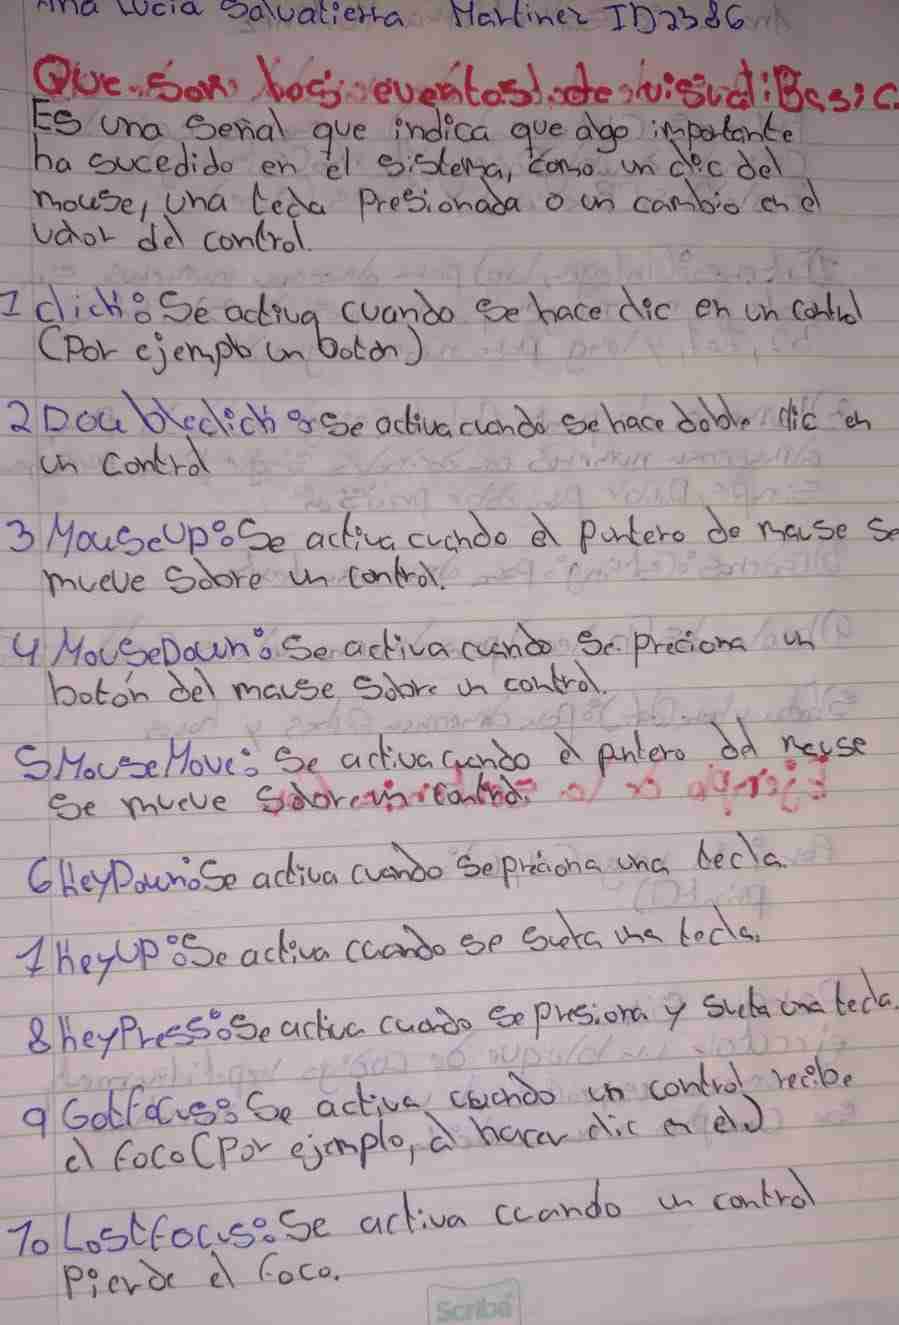 Ana Lucia Salvatierra Martinez ID2386
Que son los eventos de visual Basic
Es una señal que indica que algo impotante
ha sucedido en el sistema, como un clic del
mouse, una tecla Presionada o un cambio en el
valor del control.
1 click: Se activa cuando se hace clic en un control
(Por ejemplo un boton)
2 Doubleclick: Se activa cuando se hace doble clic en
un control
3 MouseUp: Se activa cuando el puntero de mause se
mueve sobre un control.
4 MouseDown: Se activa cuando se preciona un
botón del mause sobre un control.
5 MouseMove: Se activa cuando el puntero del mause
se mueve sobre un control.
6 KeyDown: Se activa cuando se preciona una tecla.
7 KeyUp: Se activa cuando se suelta una tecla.
8 KeyPress: Se activa cuando se presiona y suelta una tecla.
9 GotFocus: Se activa cuando un control recibe
el foco (Por ejemplo, al hacer clic en el)
10 Lostfocus: Se activa cuando un control
Pierde el foco.
Scribe